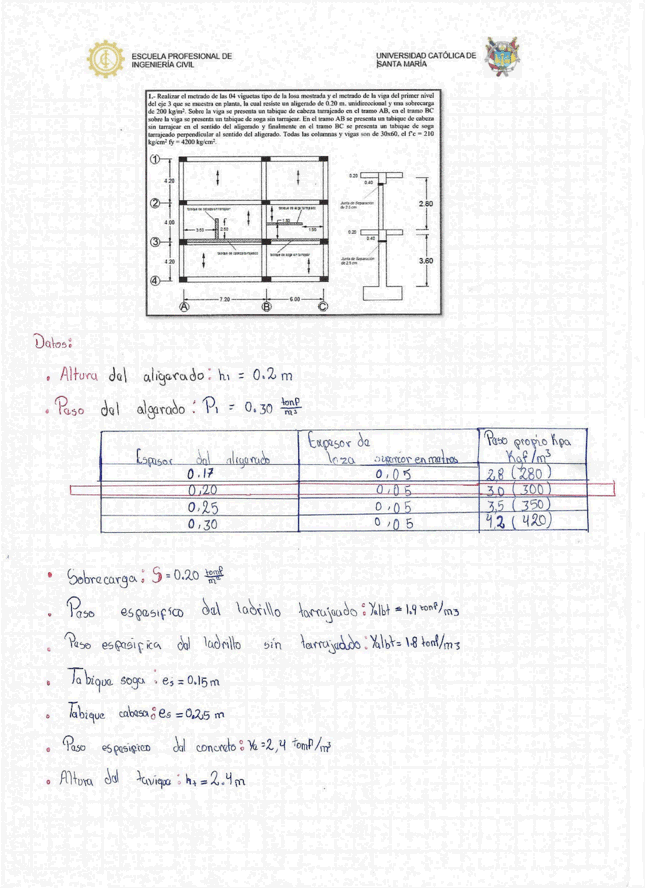 ESCUELA PROFESIONAL DE
INGENIERÍA CIVIL
UNIVERSIDAD CATÓLICA DE
SANTA MARÍA
1.- Realizar el metrado de las 04 viguetas tipo de la losa mostrada y el metrado de la viga del primer nivel
del eje 3 que se muestra en planta, la cual resiste un aligerado de 0.20 m. unidireccional y una sobrecarga
de 200 kg/m². Sobre la viga se presenta un tabique de cabeza tarrajeado en el tramo AB, en el tramo BC
sobre la viga se presenta un tabique de soga sin tarrajear. En el tramo AB se presenta un tabique de cabeza
sin tarrajear en el sentido del aligerado y finalmente en el tramo BC se presenta un tabique de soga
tarrajeado perpendicular al sentido del aligerado. Todas las columnas y vigas son de 30x60, el f'c = 210
kg/cm² fy = 4200 kg/cm².
1
4.20
2
4.00
3
4.20
4
3.60
2.60
1.50
1.50
7.20
6.00
A
B
C
0.20
0.40
Junta de Separación
de 2.5 cm
2.80
0.20
0.40
Junta de Separación
de 2.5 cm
3.60
Datos:
. Altura del aligerado: h₁ = 0.2 m
. Peso del algerado: P₁ = 0.30 tonf/m³
Espesor del aligerado
Expesor de
loza superior en metros
Peso propio Kpa
Kgf/m³
0.17 0,05 2,8 (280)
0,20 0,05 3,0 (300)
0,25 0,05 3,5 (350)
0,30 0,05 4,2 (420)
• Sobrecarga: S = 0.20 tonf/m²
. Peso espesifico del ladrillo tarrajeado: γalbt = 1.9 tonf/m3
. Peso espesifica del ladrillo sin tarrajeddo: γalbt = 1.8 tonf/m3
. Tabique soga : es = 0.15m
. Tabique cabesa: es = 0.25 m
• Peso espesifico del concreto: γc = 2,4 tonf/m³
• Altura del tavique: ht = 2.4m